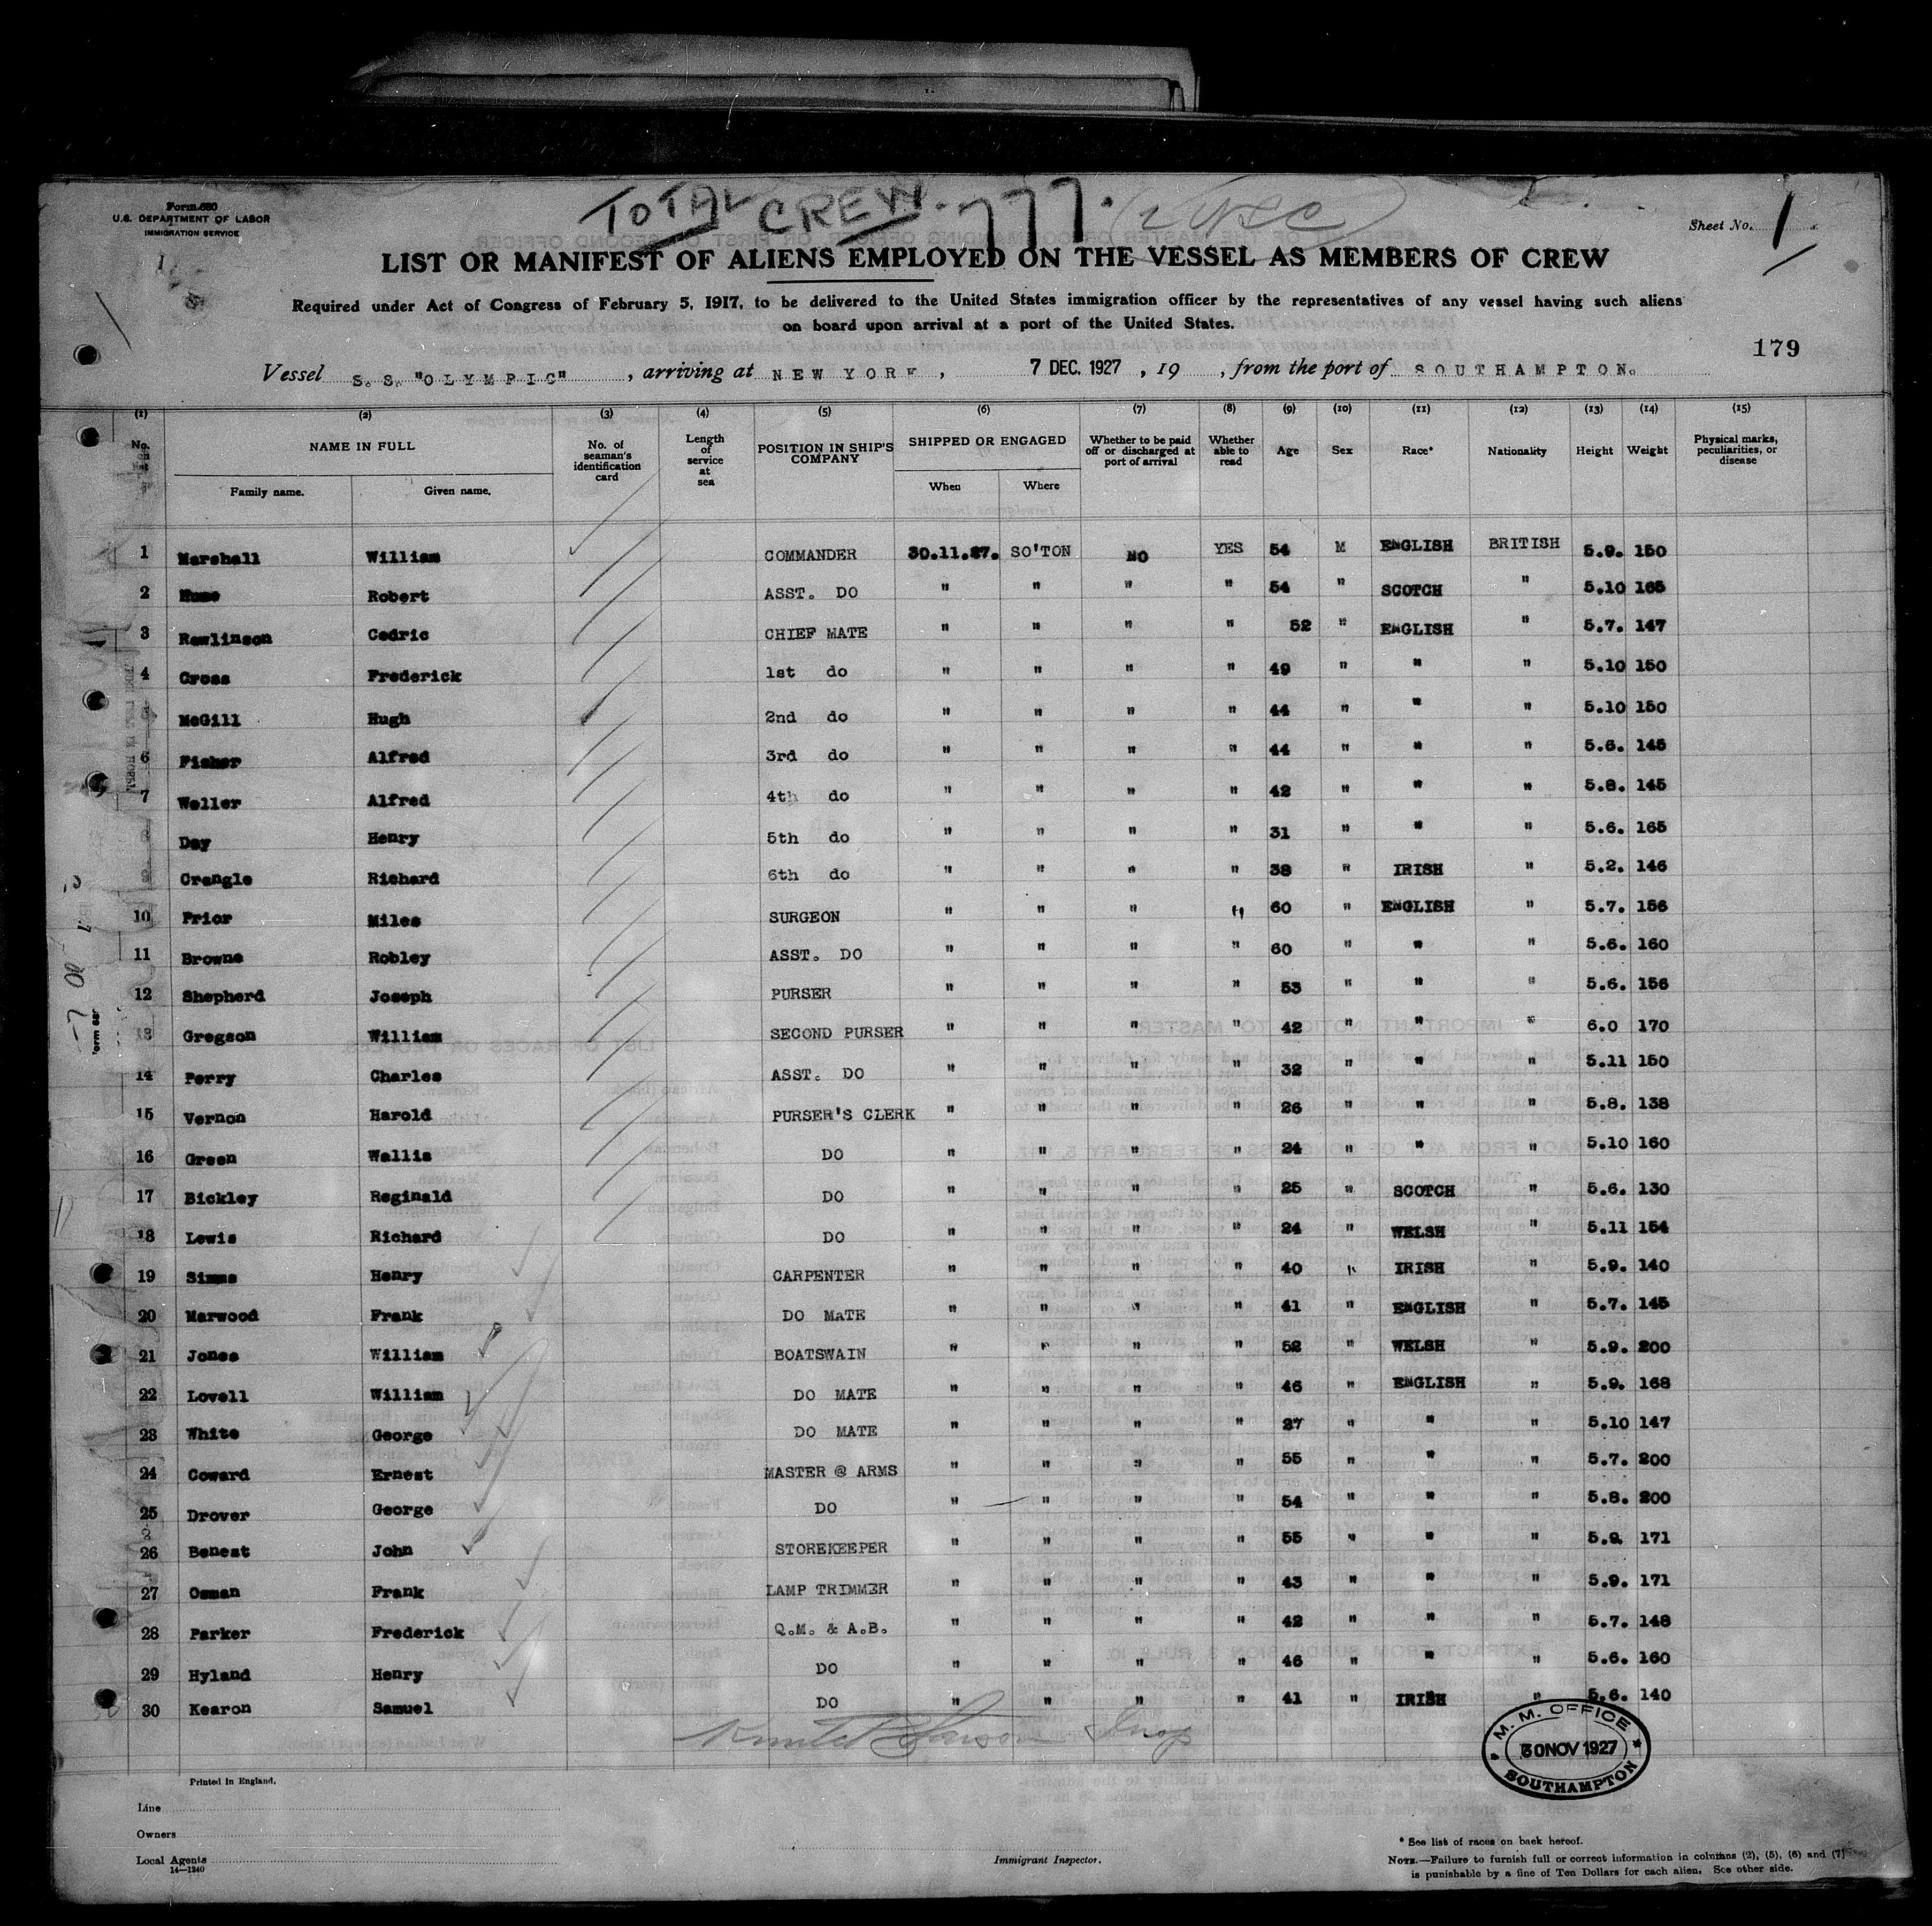 TOTAL CREW. 777.
Form 680
U.S. DEPARTMENT OF LABOR
IMMIGRATION SERVICE
Sheet No. 1
LIST OR MANIFEST OF ALIENS EMPLOYED ON THE VESSEL AS MEMBERS OF CREW
Required under Act of Congress of February 5, 1917, to be delivered to the United States immigration officer by the representatives of any vessel having such aliens
on board upon arrival at a port of the United States.
179
Vessel S.S. "OLYMPIC", arriving at NEW YORK, 7 DEC. 1927, 19 , from the port of SOUTHAMPTON.
(1) (2) (3) (4) (5) (6) (7) (8) (9) (10) (11) (12) (13) (14) (15)
No. on list NAME IN FULL Family name. Given name. No. of seaman's identification card Length of service at sea POSITION IN SHIP'S COMPANY SHIPPED OR ENGAGED When Where Whether to be paid off or discharged at port of arrival Whether able to read Age Sex Race* Nationality Height Weight Physical marks, peculiarities, or disease
1 Marshall William COMMANDER 30.11.27. SO'TON NO YES 54 M ENGLISH BRITISH 5.9. 150
2 Hume Robert ASST. DO " " " " 54 " SCOTCH " 5.10 165
3 Rawlinson Cedric CHIEF MATE " " " " 52 " ENGLISH " 5.7. 147
4 Cross Frederick 1st do " " " " 49 " " " 5.10 150
5 McGill Hugh 2nd do " " " " 44 " " " 5.10 150
6 Fisher Alfred 3rd do " " " " 44 " " " 5.6. 145
7 Weller Alfred 4th do " " " " 42 " " " 5.8. 145
8 Day Henry 5th do " " " " 31 " " " 5.6. 165
9 Crangle Richard 6th do " " " " 38 " IRISH " 5.2. 146
10 Prior Miles SURGEON " " " " 60 " ENGLISH " 5.7. 156
11 Browne Robley ASST. DO " " " " 60 " " " 5.6. 160
12 Shepherd Joseph PURSER " " " " 53 " " " 5.6. 156
13 Gregson William SECOND PURSER " " " " 42 " " " 6.0 170
14 Perry Charles ASST. DO " " " " 32 " " " 5.11 150
15 Vernon Harold PURSER'S CLERK " " " " 26 " " " 5.8. 138
16 Green Wallis DO " " " " 24 " " " 5.10 160
17 Bickley Reginald DO " " " " 25 " SCOTCH " 5.6. 130
18 Lewis Richard DO " " " " 24 " WELSH " 5.11 154
19 Simms Henry CARPENTER " " " " 40 " IRISH " 5.9. 140
20 Marwood Frank DO MATE " " " " 41 " ENGLISH " 5.7. 145
21 Jones William BOATSWAIN " " " " 52 " WELSH " 5.9. 200
22 Lovell William DO MATE " " " " 46 " ENGLISH " 5.9. 168
23 White George DO MATE " " " " 27 " " " 5.10 147
24 Coward Ernest MASTER @ ARMS " " " " 55 " " " 5.7. 200
25 Drover George DO " " " " 54 " " " 5.8. 200
26 Benest John STOREKEEPER " " " " 55 " " " 5.9. 171
27 Osman Frank LAMP TRIMMER " " " " 43 " " " 5.9. 171
28 Parker Frederick Q.M. & A.B. " " " " 42 " " " 5.7. 148
29 Hyland Henry DO " " " " 46 " " " 5.6. 160
30 Kearon Samuel DO " " " " 41 " IRISH " 5.6. 140
M. M. OFFICE
30 NOV 1927
SOUTHAMPTON
Printed in England.
Line
Owners
Local Agents
14—1240
Immigrant Inspector.
* See list of races on back hereof.
NOTE.—Failure to furnish full or correct information in columns (2), (5), (6) and (7)
is punishable by a fine of Ten Dollars for each alien. See other side.